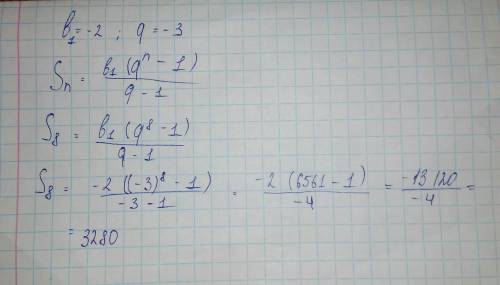 b₁ = -2 ; q = -3
Sₙ = b₁ (qⁿ - 1) / q - 1
S₈ = b₁ (q⁸ - 1) / q - 1
S₈ = -2 ((-3)⁸ - 1) / -3 - 1 = -2 (6561 - 1) / -4 = -13120 / -4 =
= 3280